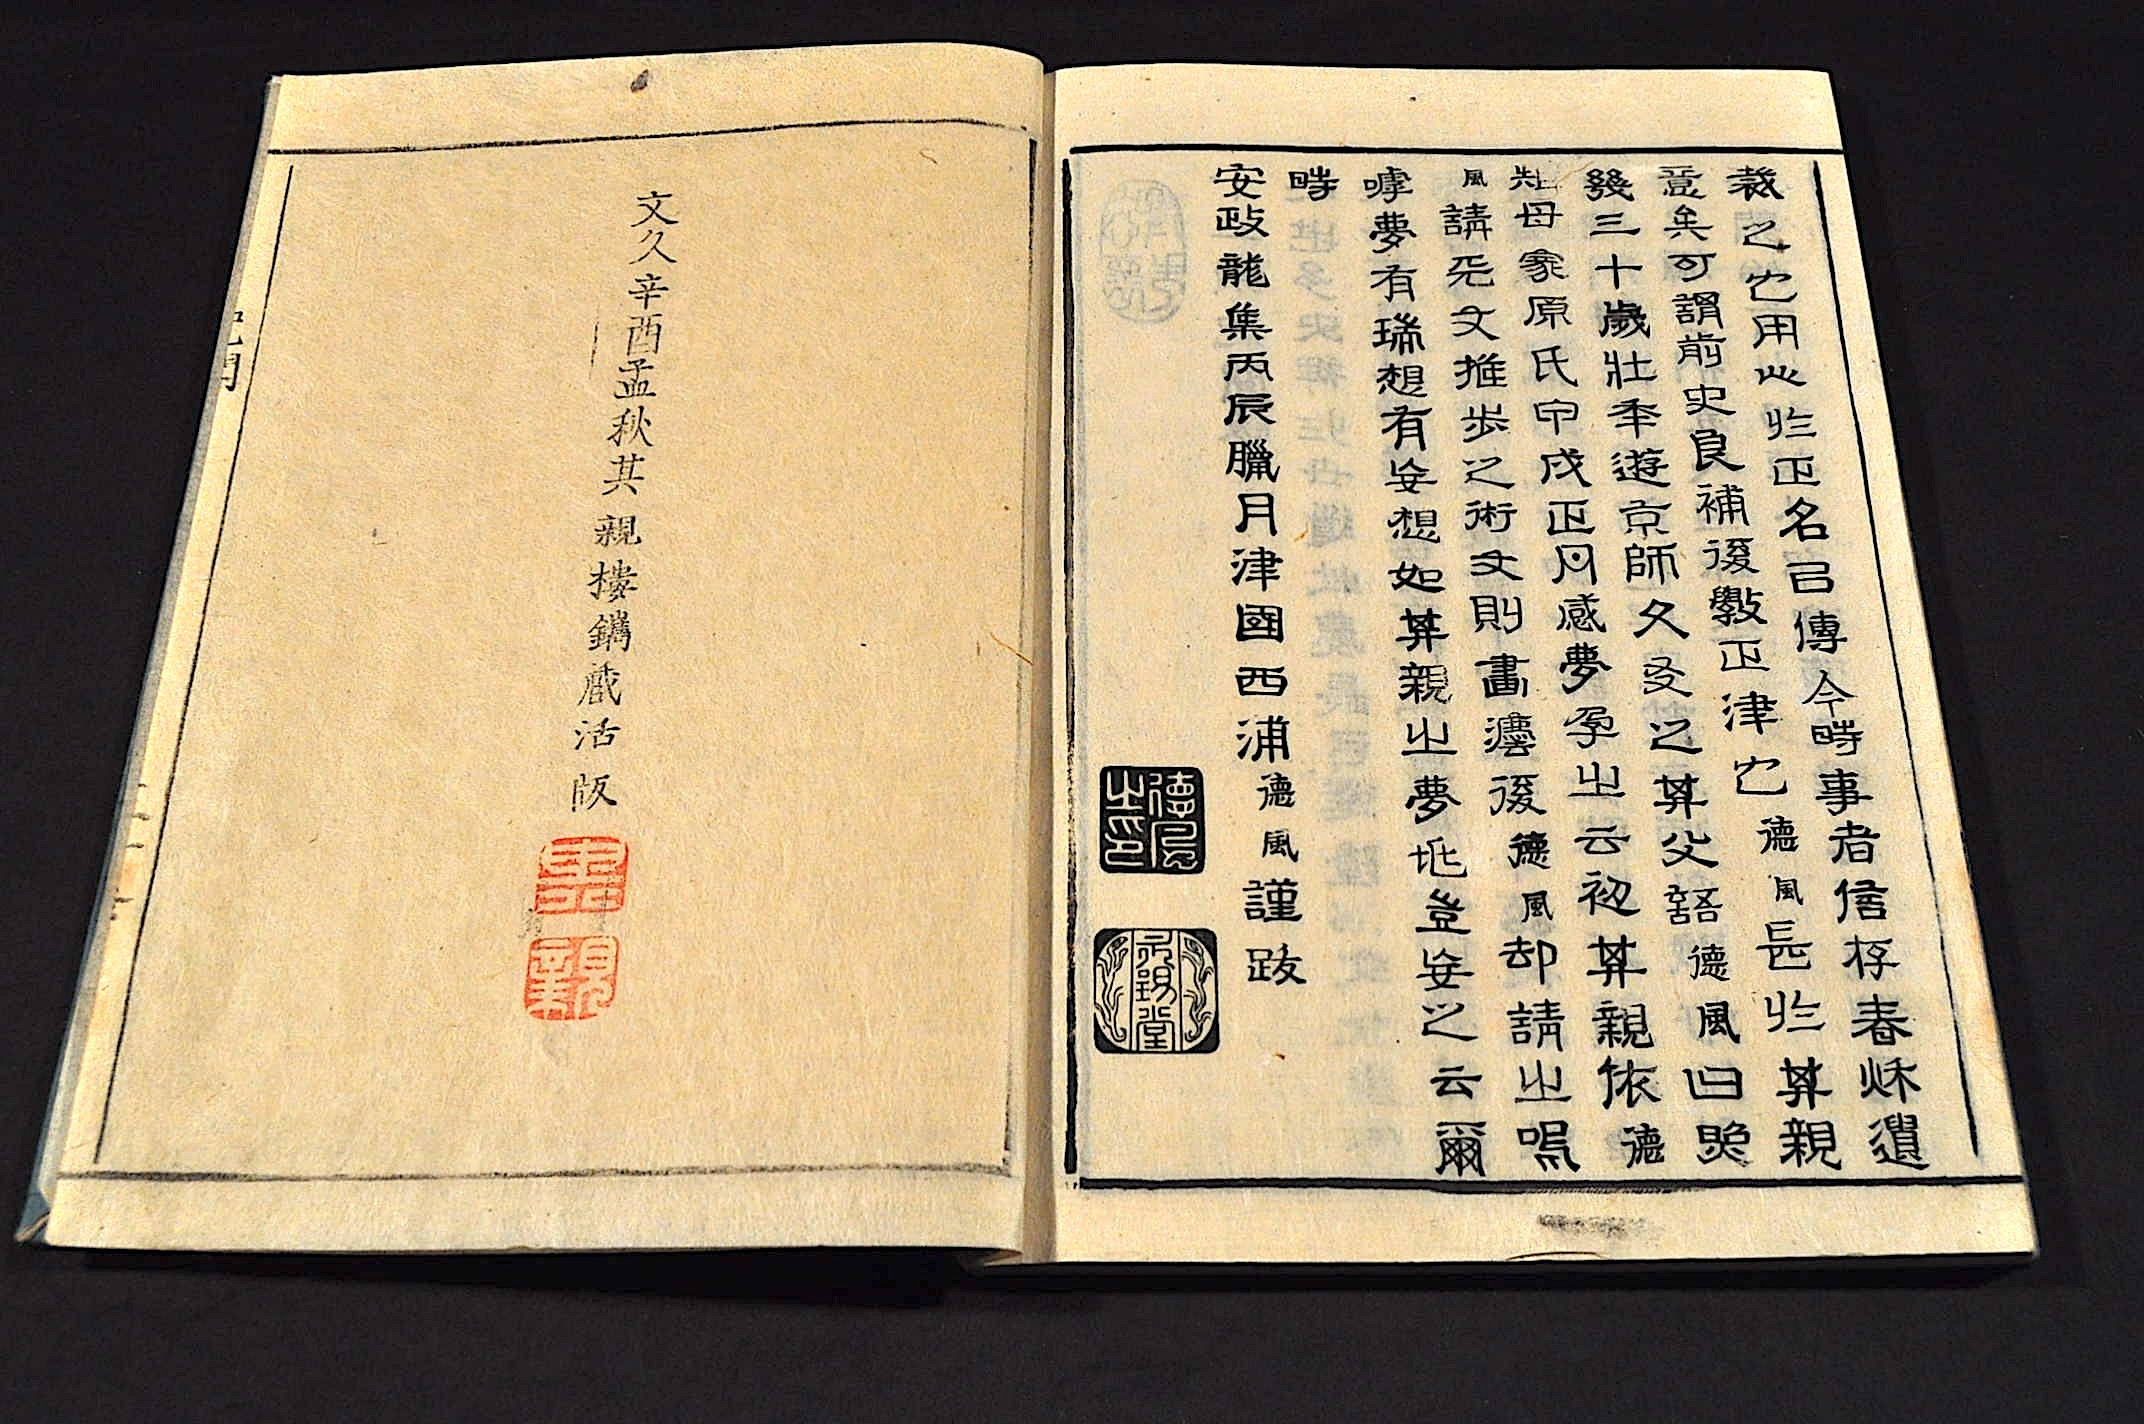 裁之也用心於正名己傳今時事者信存春秋遺
意矣可謂前史良補後斅正津也德風長於其親
幾三十歲壯年遊京師久矣之其父語德風曰然
母家原氏甲戌正月感夢孕之云初其親依德
風請死文推步之術文則畫瀘後德風却請之嗚
嘑夢有瑞想有妄想如其親之夢也豈妄之云爾
時
安政龍集丙辰臘月津國西浦德風謹跋
德風之印
永錫堂
文久辛酉孟秋其親樓鐫藏活版
其親